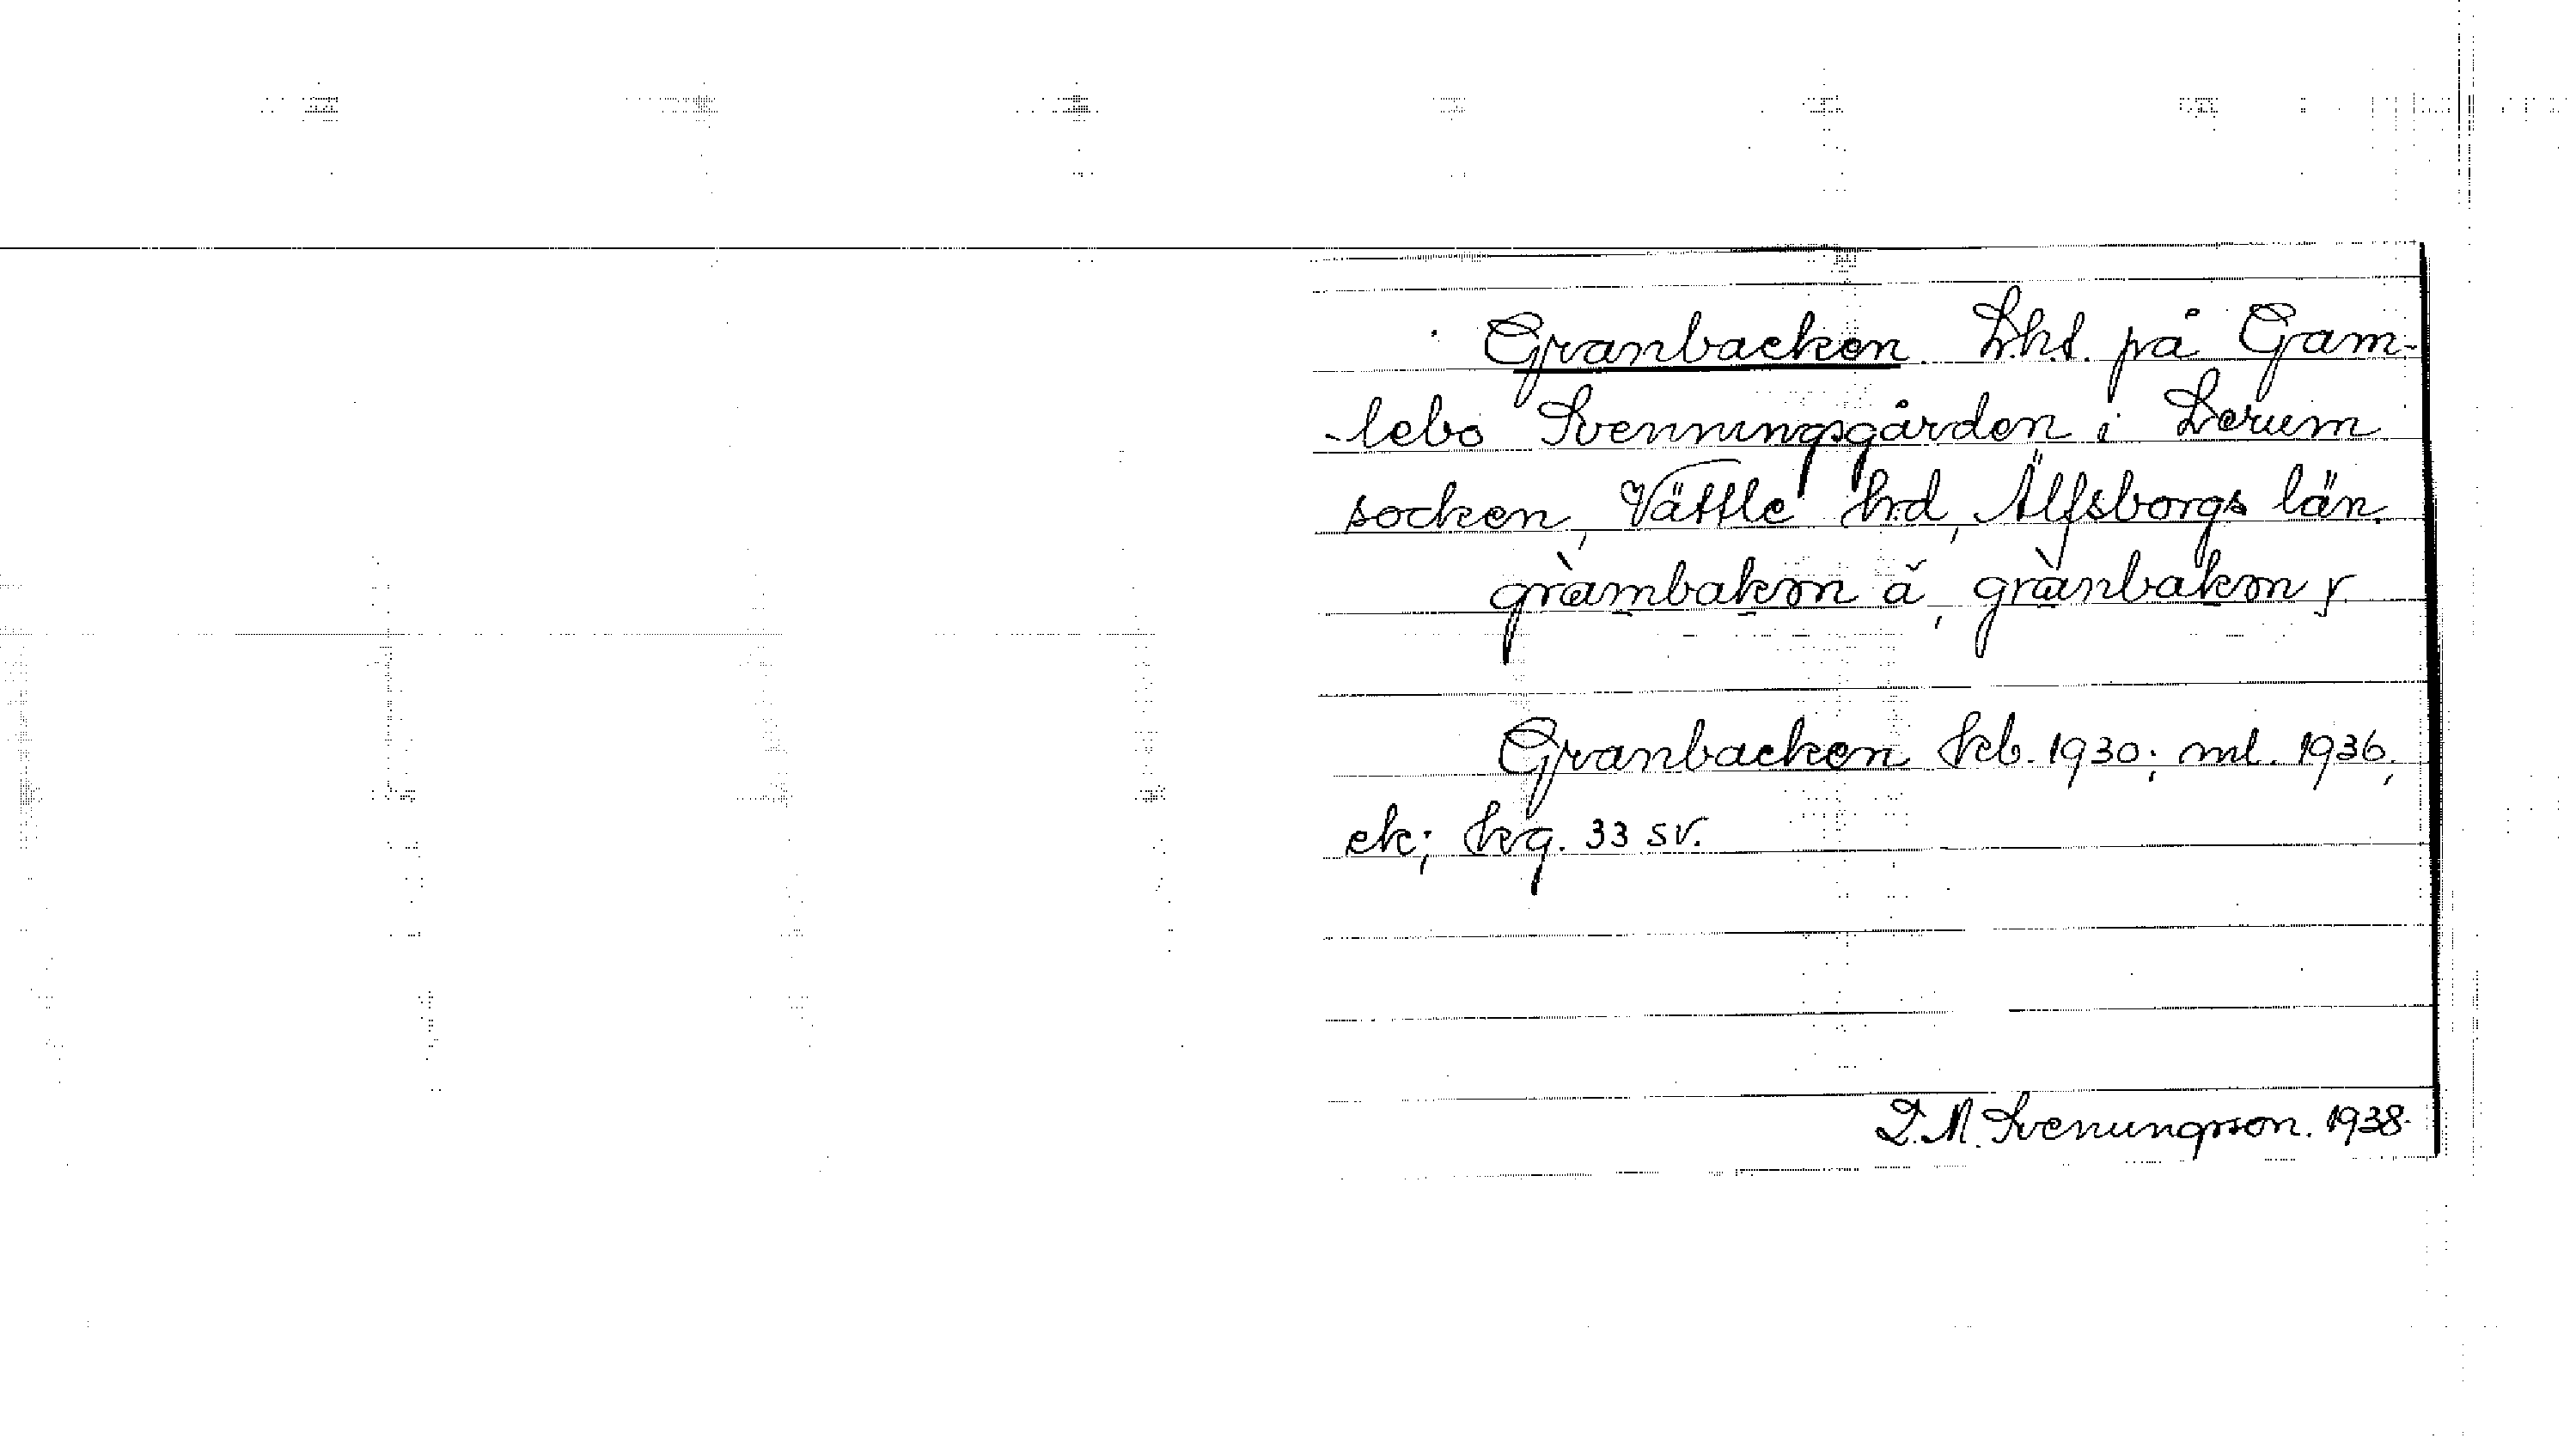 Granbacken Lht. på Gam-
-lebo Svenningsgården i Lerum
socken, Vättle hd, Älfsborgs län.
gràmbakon ä, grànbakon y.
Granbacken kb. 1930; ml. 1936,
ek; krg. 33 SV.
D. M. Svenungsson. 1938.